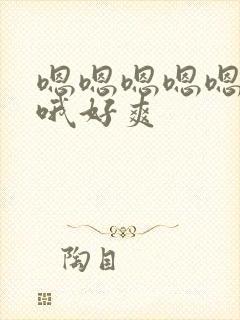 嗯嗯嗯嗯嗯
哦好爽
陶目